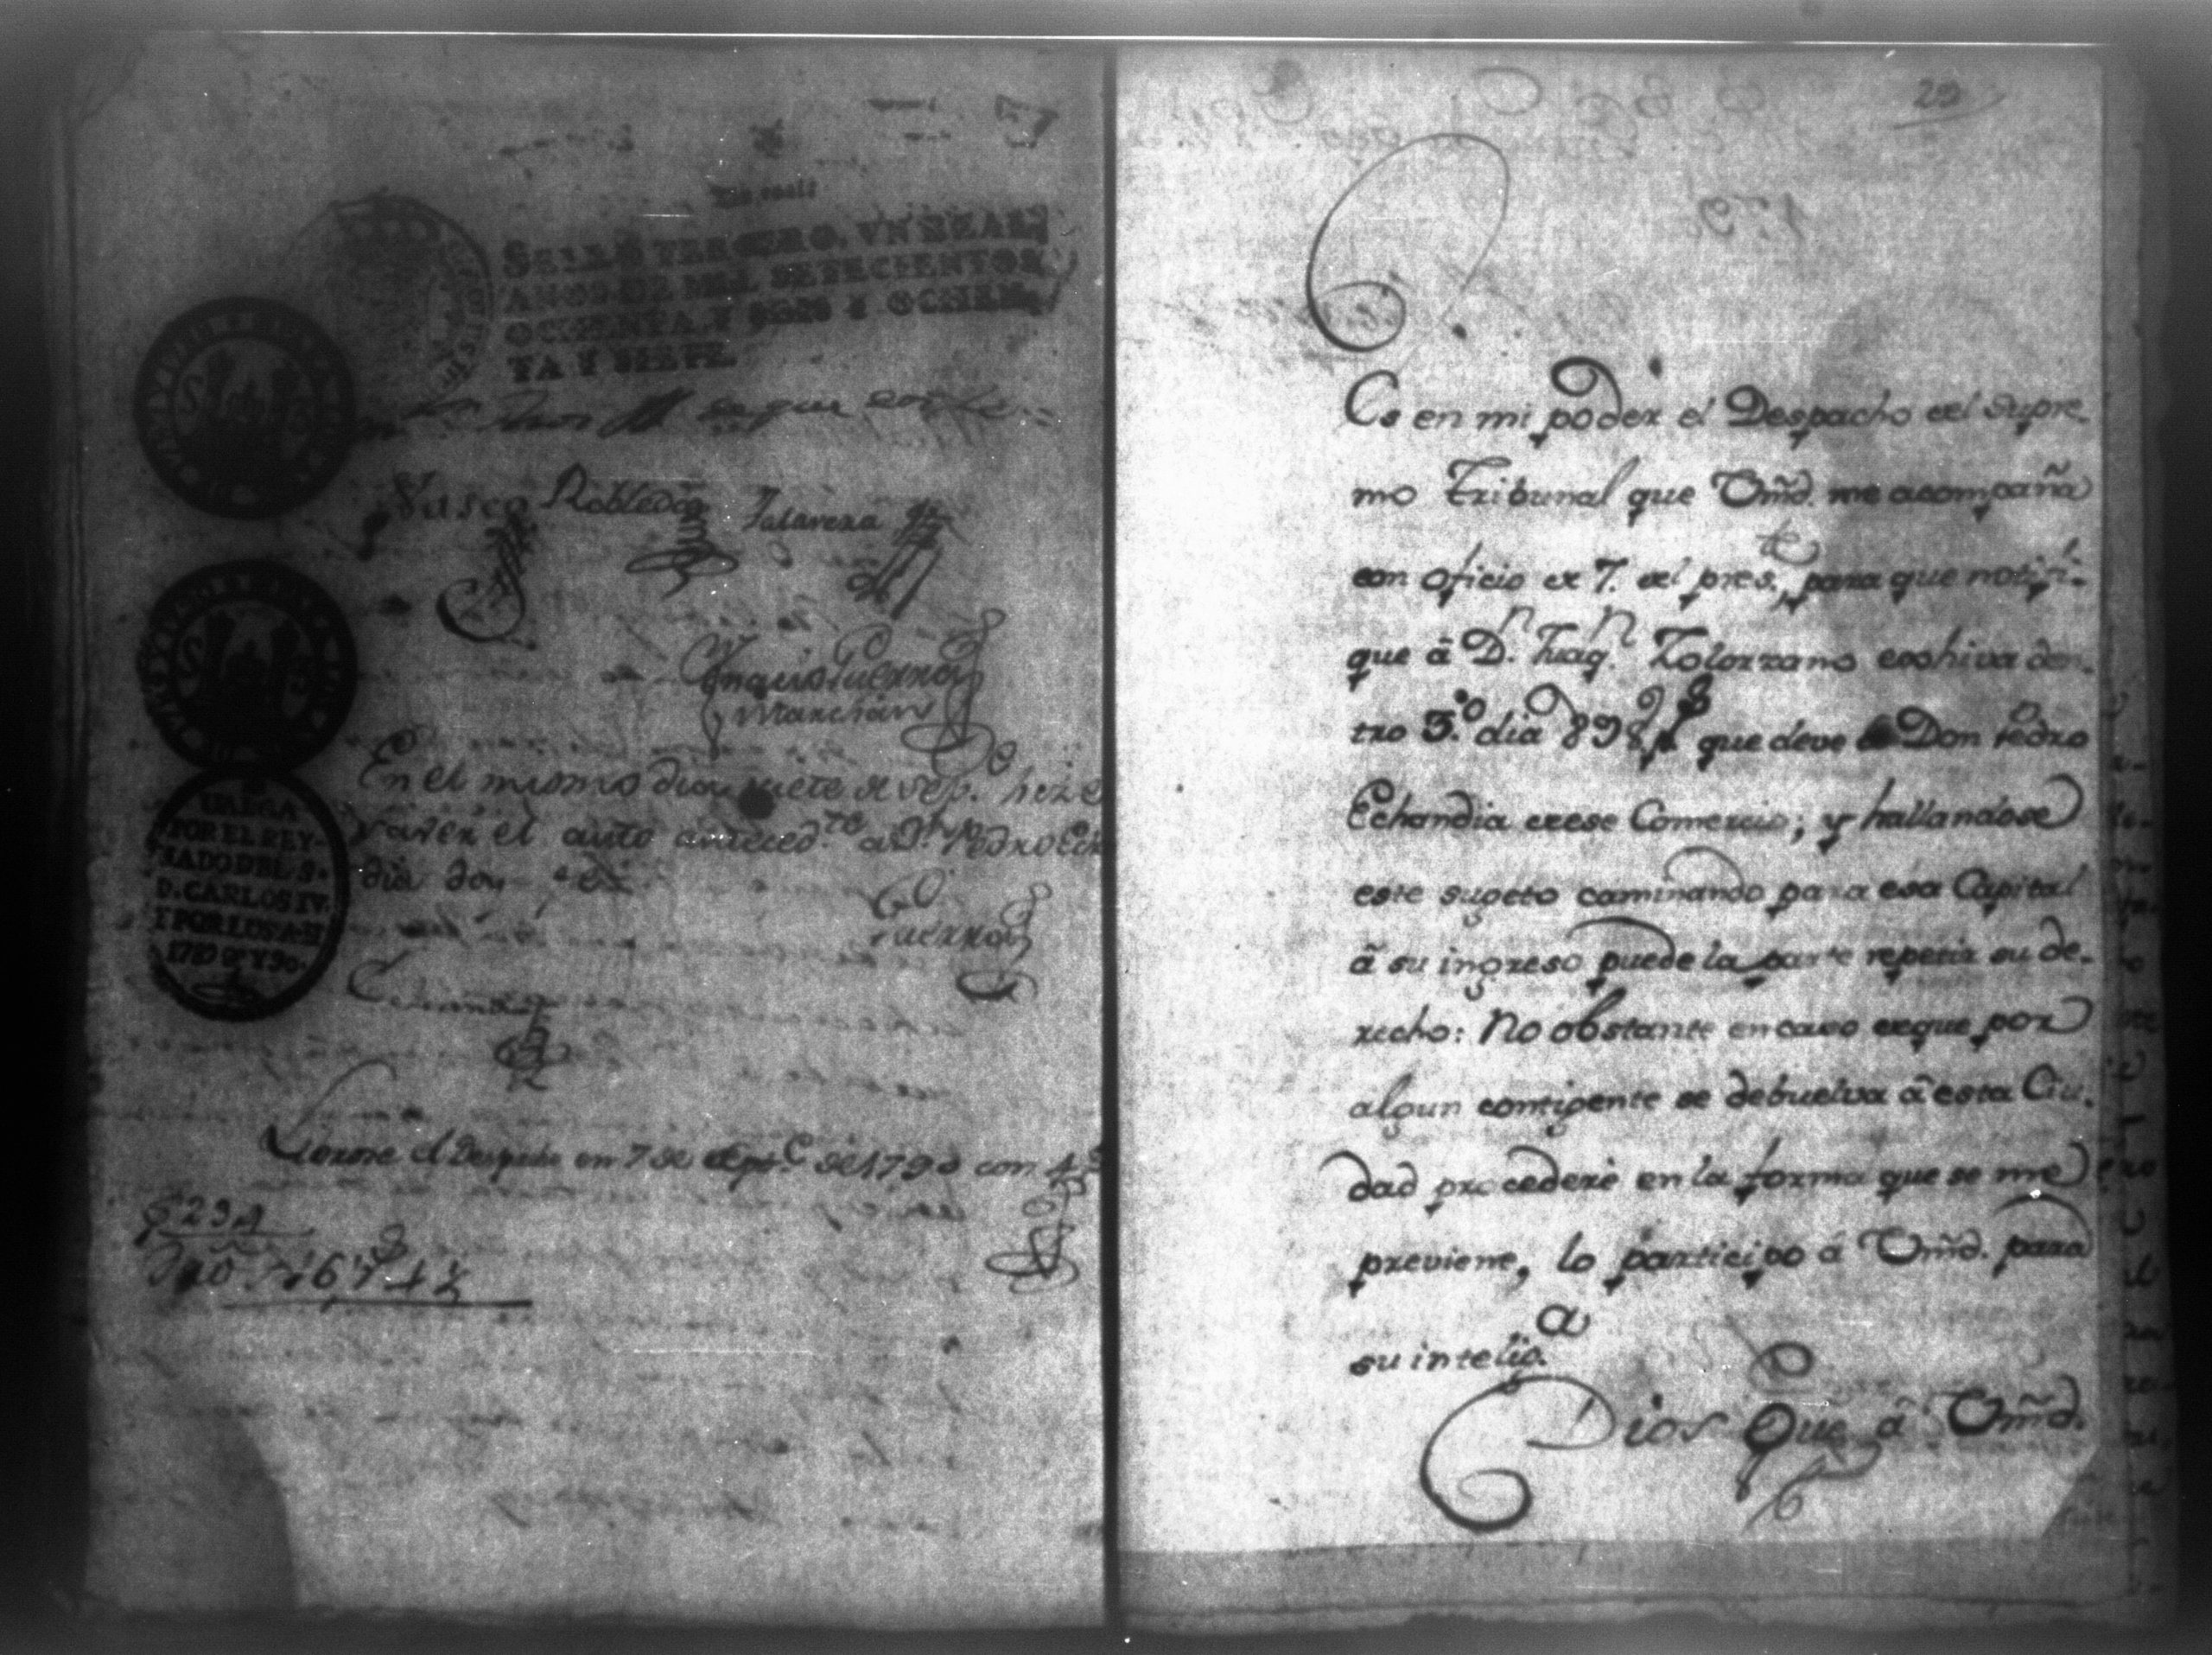 SELLO TERCERO, VN REAL,
AÑOS DE MIL SETECIENTOS
OCHENTA, Y SEIS Y OCHEN,
TA Y SIETE.
Vasco Robledo Talavera
Puerro
Marchan
En el mismo dia siete de Sep.e hize
el auto anteced.te a D.n Pedro Ech
dia doy fee
Puerro
Echandia
VALGA
POR EL REY-
NADO DEL S.
D. CARLOS IV.
Y POR LOS A. D.
1789 y 90.
Librose el Despacho en 7 de Sept.e de 1790 con
29
Es en mi poder el Despacho del Supre-
mo Tribunal que Vm̃d. me acompaña
con oficio de 7. del pres.te para que notifi-
que â D.n Juaq.n Zolorzano exshiva den-
tro 3.o dia 898 p.s que deve Don Pedro
Echandia de ese Comercio; y hallandose
este sugeto caminando para esa Capital
â su ingreso puede la parte repetir su de-
recho: No obstante en caso de que por
algun contigente se debuelva â esta Ciu-
dad procederé en la forma que se me
previene, lo participo â Vm̃d. para
su intelig.a
Dios Gue â Vm̃d.